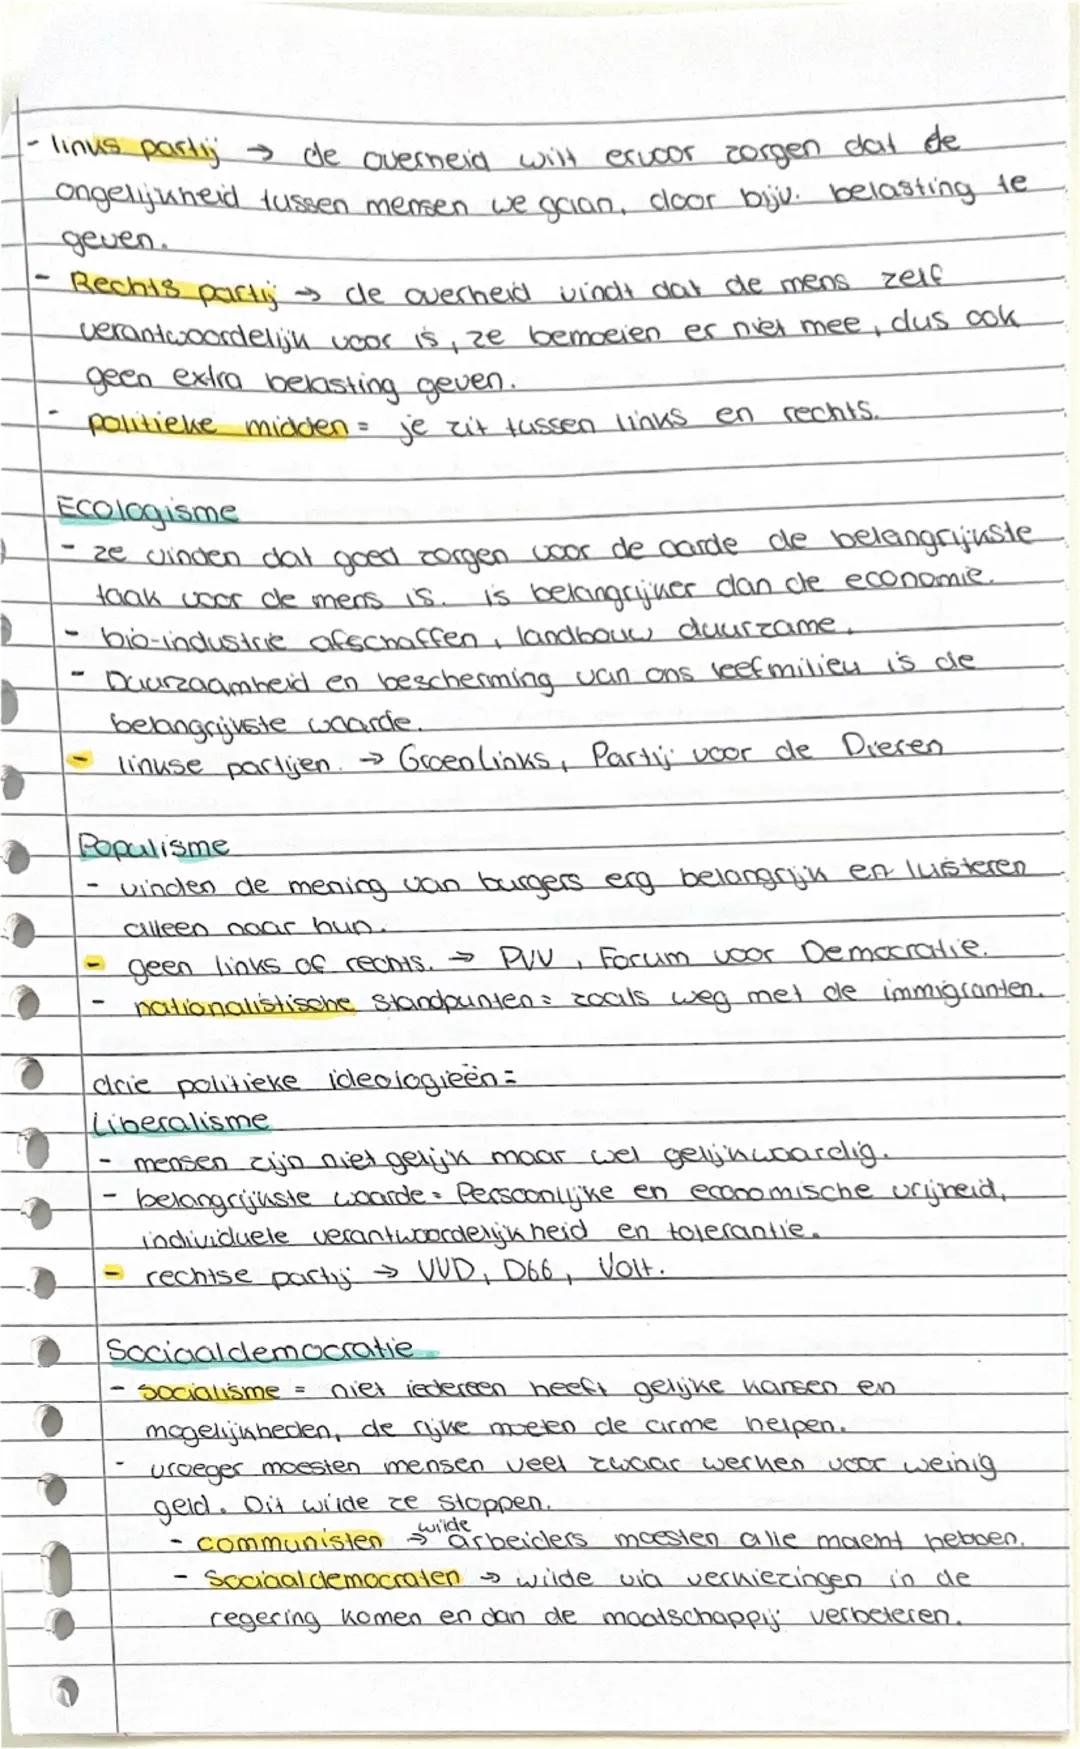 - links partij → de overheid wilt ervoor zorgen dat de
ongelijkheid tussen mensen we gaan, door bijv. belasting te
geven.
- Rechts partij → de overheid vindt dat de mens zelf
verantwoordelijk voor is, ze bemoeien er niet mee, dus ook
geen extra belasting geven.
- politieke midden = je zit tussen links en rechts.
Ecologisme
- ze vinden dat goed zorgen voor de aarde de belangrijkste
taak voor de mens is. is belangrijker dan de economie.
- bio-industrie afschaffen, landbouw duurzame.
- Duurzaamheid en bescherming van ons leefmilieu is de
belangrijkste waarde.
- linkse partijen. → GroenLinks, Partij voor de Dieren
Populisme
- vinden de mening van burgers erg belangrijk en luisteren
alleen naar hun.
- geen links of rechts. → PVV, Forum voor Democratie.
- nationalistische standpunten = zoals weg met de immigranten.
drie politieke ideologieën =
Liberalisme
- mensen zijn niet gelijk maar wel gelijkwaardig.
- belangrijkste waarde = Persoonlijke en economische vrijheid,
individuele verantwoordelijkheid en tolerantie.
- rechtse partij → VVD, D66, Volt.
Sociaaldemocratie
- socialisme = niet iedereen heeft gelijke kansen en
mogelijkheden, de rijke moeten de arme helpen.
- vroeger moesten mensen veel zwaar werken voor weinig
geld. Dit wilde ze stoppen.
- communisten → wilde arbeiders moesten alle macht hebben.
- Sociaaldemocraten → wilde via verkiezingen in de
regering komen en dan de maatschappij verbeteren.